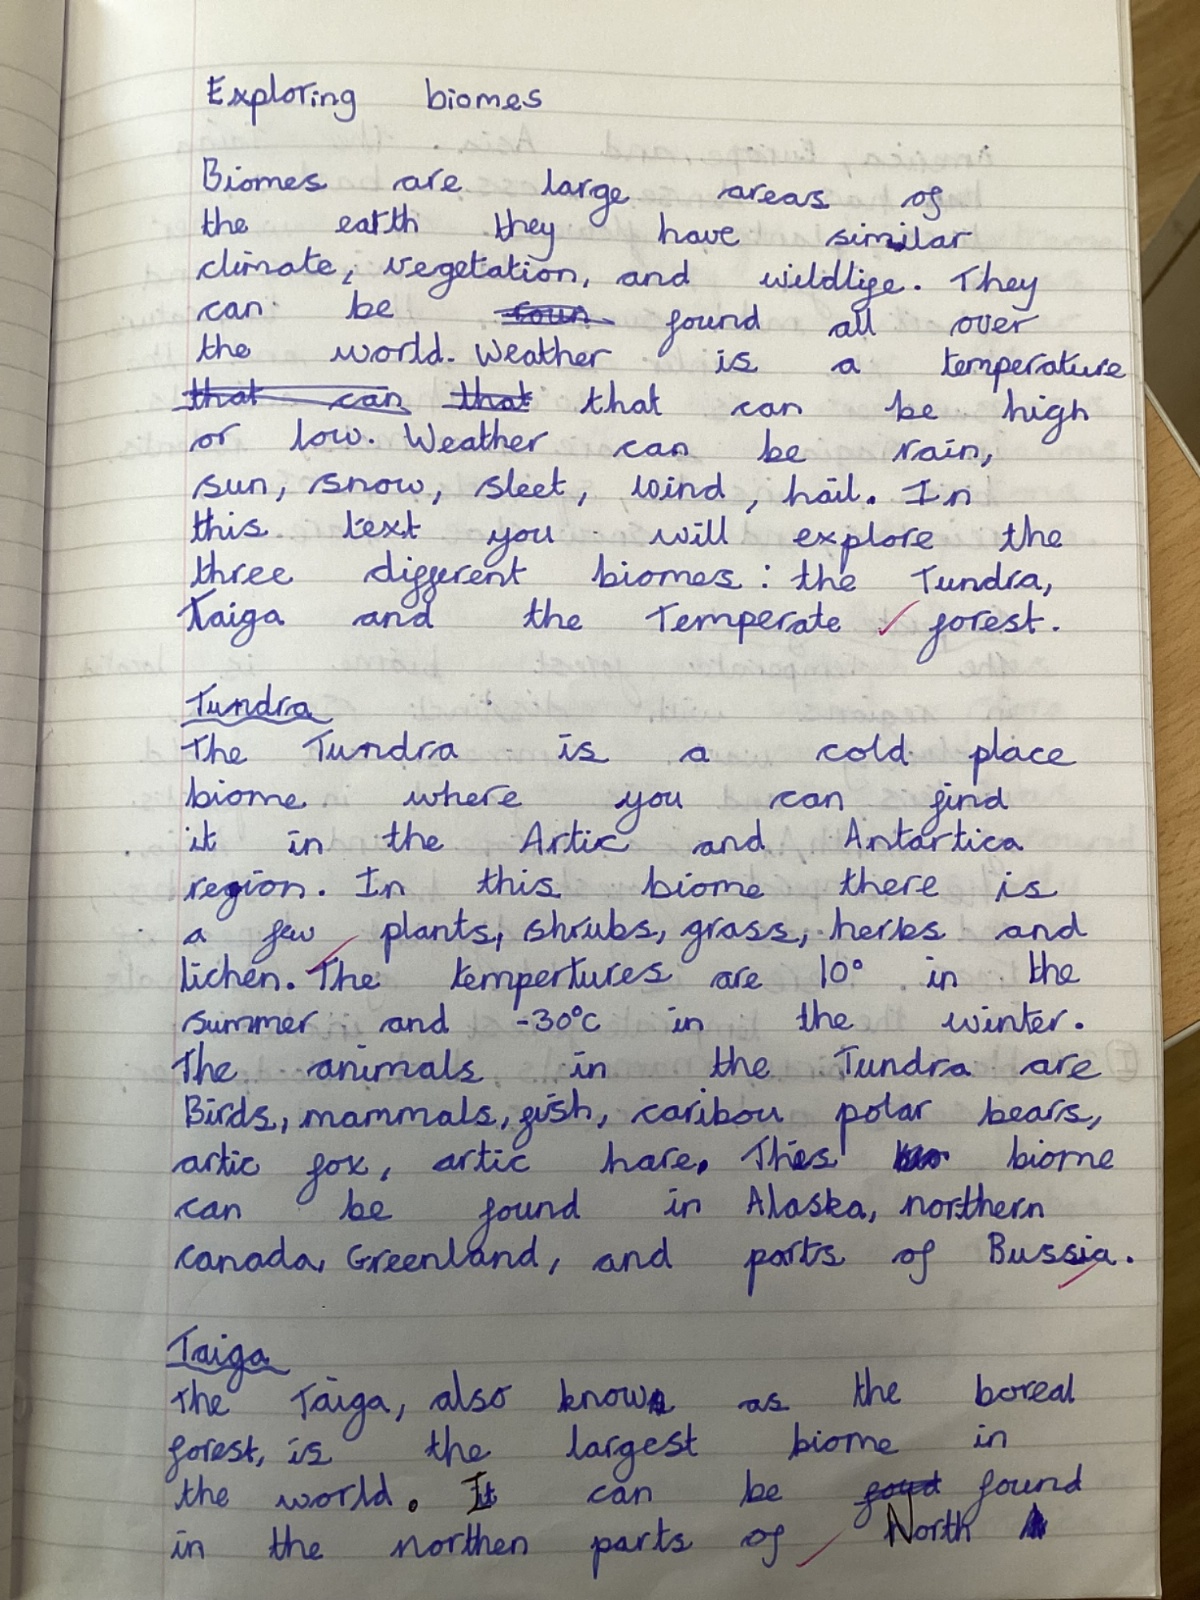 Exploring biomes
Biomes are large areas of
the earth they have similar
climate, vegetation, and wildlife. They
can be found all over
the world. Weather is a temperature
that can that that can be high
or low. Weather can be rain,
sun, snow, sleet, wind, hail. In
this text you will explore the
three different biomes: the Tundra,
Taiga and the Temperate forest.
Tundra
The Tundra is a cold place
biome where you can find
it in the Artic and Antartica
region. In this biome there is
a few plants, shrubs, grass, herbs and
lichen. The tempertures are 10° in the
summer and -30°c in the winter.
The animals in the Tundra are
Birds, mammals, fish, caribou polar bears,
artic fox, artic hare. This biome
can be found in Alaska, northern
canada, Greenland, and parts of Bussia.
Taiga
The Taiga, also known as the boreal
forest, is the largest biome in
the world. It can be found
in the northen parts of North